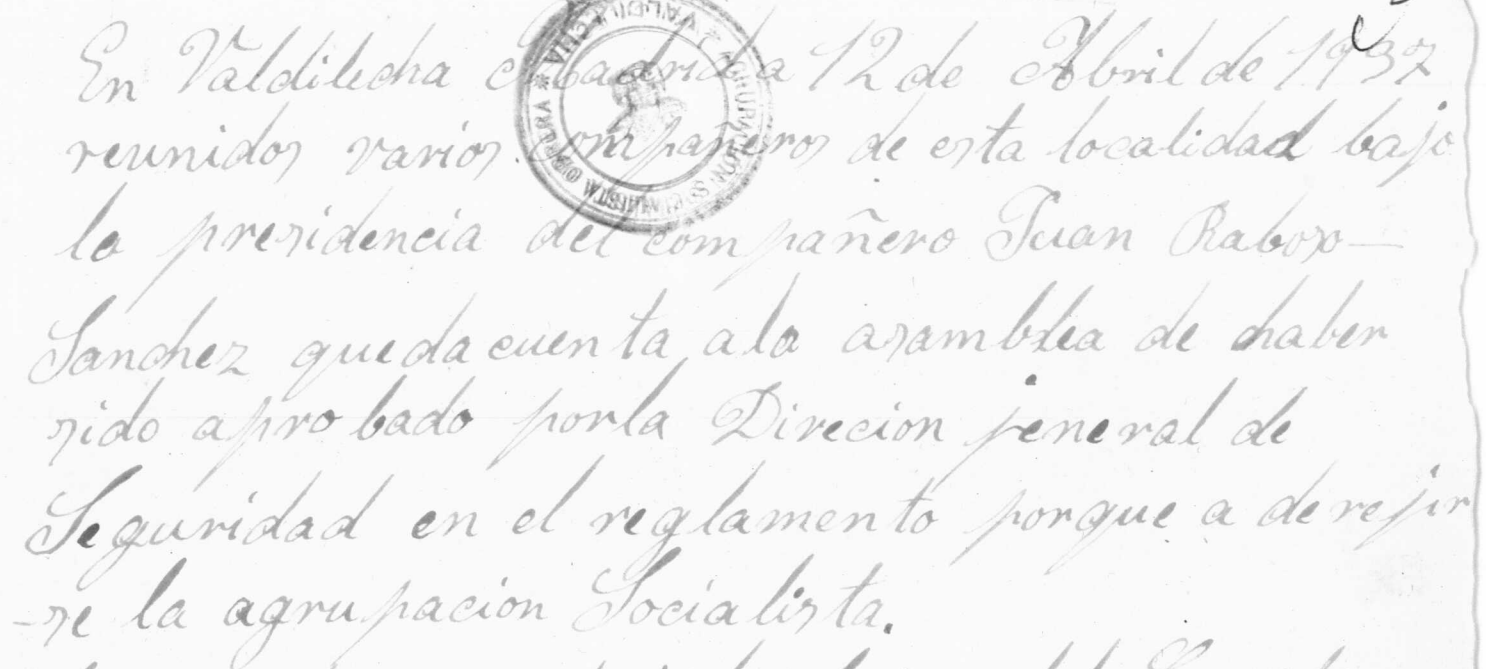 En Valdilecha Madrid a 12 de Abril de 1937
reunidos varios compañeros de esta localidad bajo
la presidencia del compañero Juan Raboso
Sanchez queda cuenta ala asamblea de haber
sido aprobado porla Direcion jeneral de
Seguridad en el reglamento porque a derejir
-se la agrupacion Socialista.
AGRUPACION SOCIALISTA OBRERA * VALDILECHA *